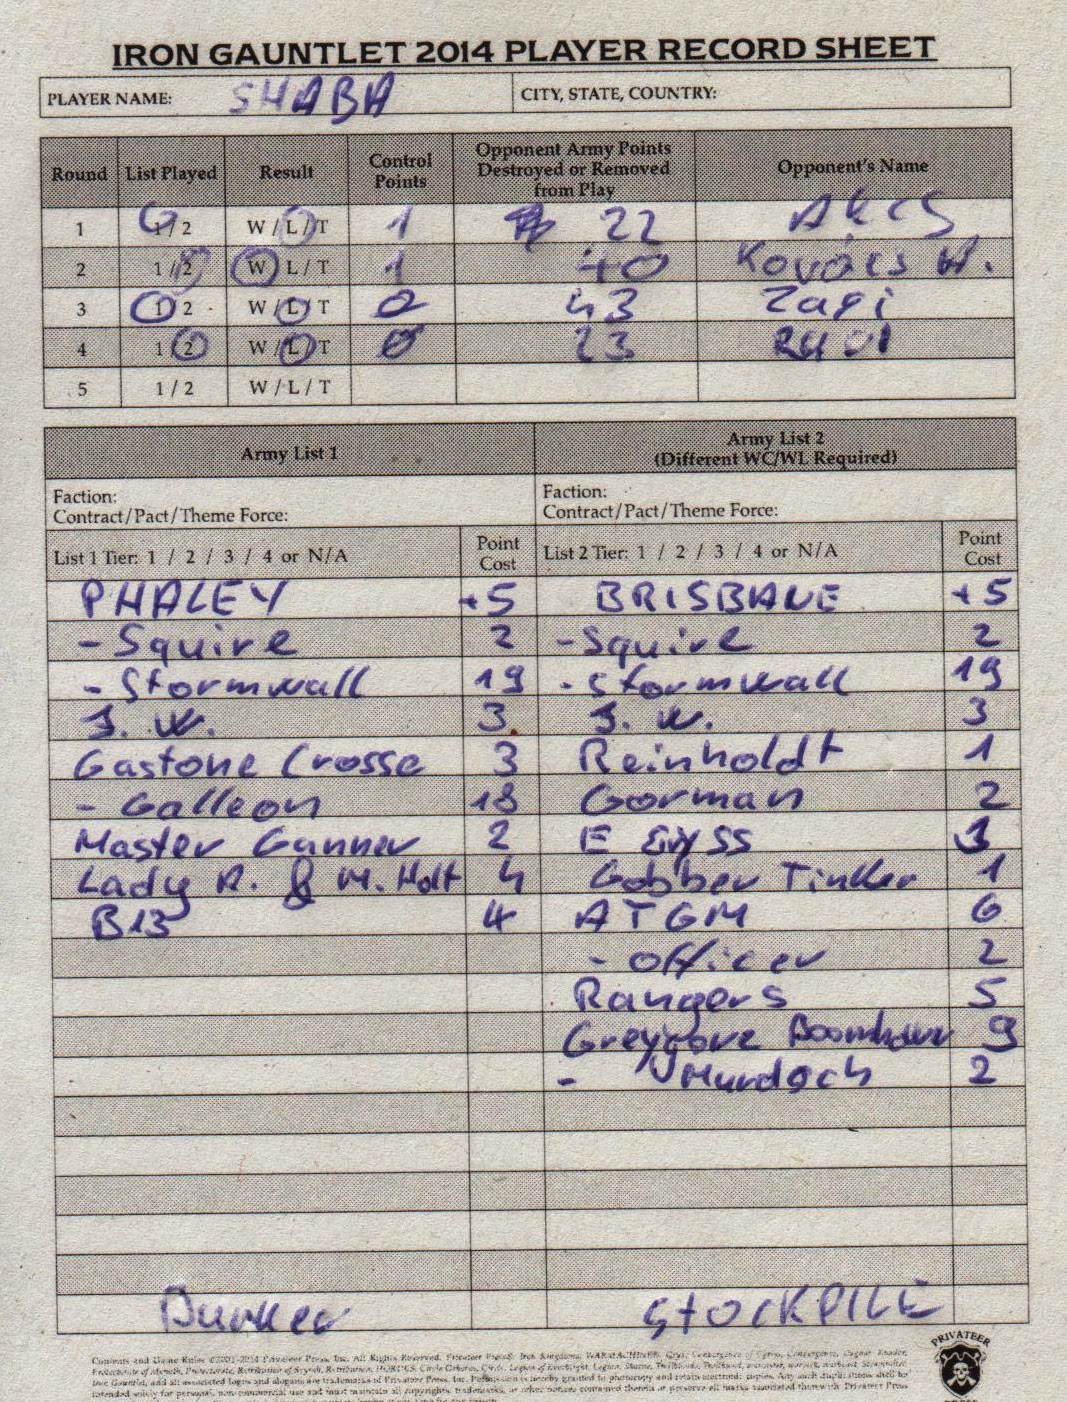 IRON GAUNTLET 2014 PLAYER RECORD SHEET
PLAYER NAME: SHABA CITY, STATE, COUNTRY:
Round List Played Result Control Points Opponent Army Points Destroyed or Removed from Play Opponent's Name
1 1 / 2 W / L / T 1 22 AKCS
2 1 / 2 W / L / T 1 40 Kovács A.
3 1 / 2 W / L / T 0 43 Zagi
4 1 / 2 W / L / T 0 23
5 1 / 2 W / L / T
Army List 1 Army List 2
(Different WC/WL Required)
Faction: Faction:
Contract/Pact/Theme Force: Contract/Pact/Theme Force:
List 1 Tier: 1 / 2 / 3 / 4 or N/A Point Cost List 2 Tier: 1 / 2 / 3 / 4 or N/A Point Cost
PHALEY +5 BRISBANE +5
- Squire 2 - Squire 2
- Stormwall 19 - Stormwall 19
J. W. 3 J. W. 3
Gastone Crosse 3 Reinholdt 1
- Galleon 18 Gorman 2
Master Gunner 2 E Eiryss 3
Lady A. & M. Holt 4 Gobber Tinker 1
B13 4 ATGM 6
- Officer 2
Rangers 5
Greygore Boomhowr 9
- Murdoch 2
Bunker STOCKPILE
PRIVATEER